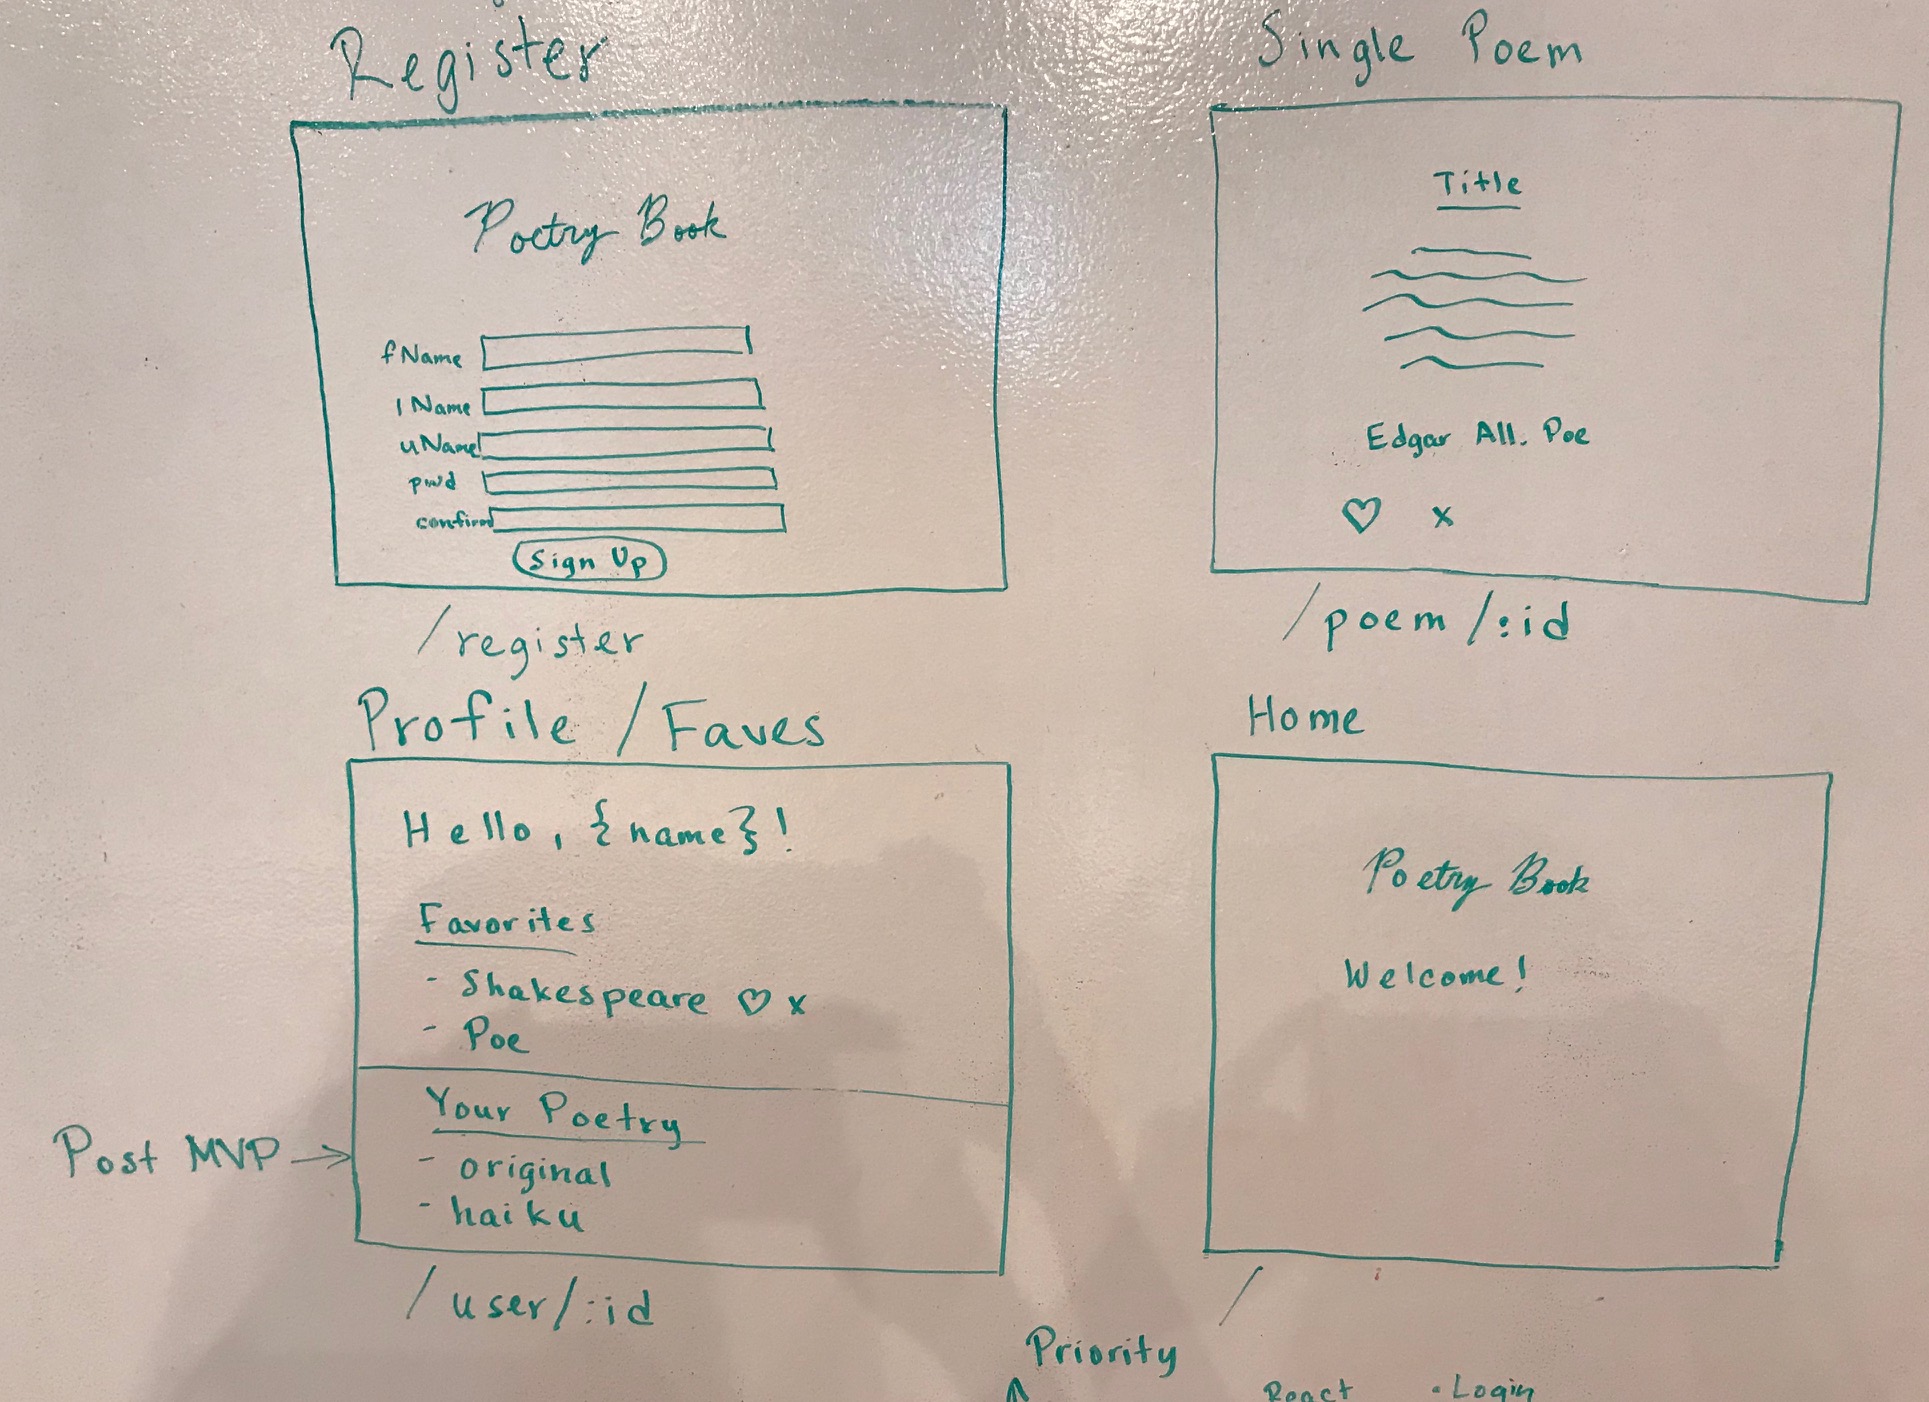 Register
Poetry Book
fName
lName
uName
pwd
confirm
Sign Up
/register
Single Poem
Title
Edgar All. Poe
♡ x
/poem/:id
Profile / Faves
Hello, {name}!
Favorites
- Shakespeare ♡ x
- Poe
Your Poetry
- original
- haiku
Post MVP →
/user/:id
Home
Poetry Book
Welcome!
/
Priority
React
• Login